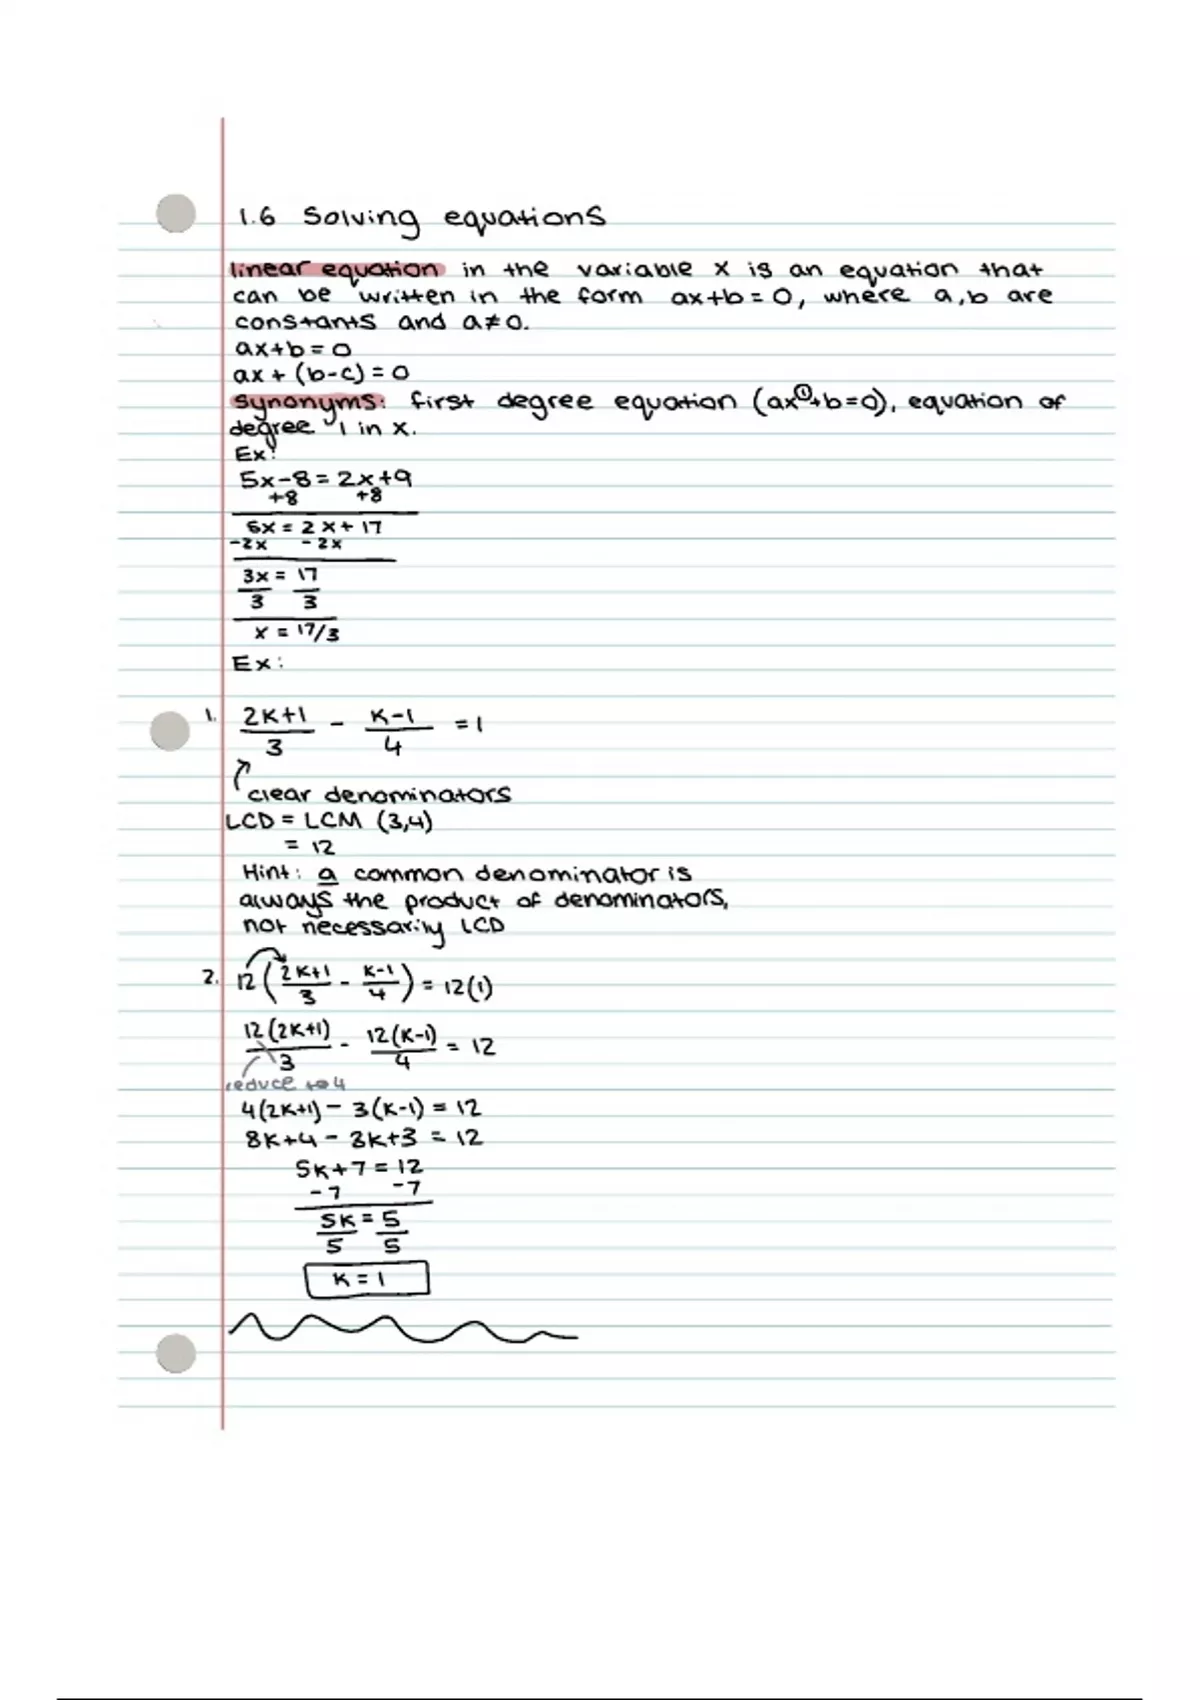 1.6 Solving equations
linear equation in the variable x is an equation that
can be written in the form ax+b=0, where a,b are
constants and a≠0.
ax+b=0
ax+(b-c)=0
synonyms: first degree equation (ax①+b=0), equation of
degree 1 in x.
Ex:
5x-8=2x+9
+8 +8
5x=2x+17
-2x -2x
3x = 17
3 3
x = 17/3
Ex:
1. 2k+1 - k-1 = 1
3 4
clear denominators
LCD = LCM (3,4)
= 12
Hint: a common denominator is
always the product of denominators,
not necessarily LCD
2. 12 (2k+1/3 - k-1/4) = 12(1)
12(2k+1)/3 - 12(k-1)/4 = 12
reduce to 4
4(2k+1) - 3(k-1) = 12
8k+4 - 3k+3 = 12
5k+7=12
-7 -7
5k = 5
5 5
k = 1